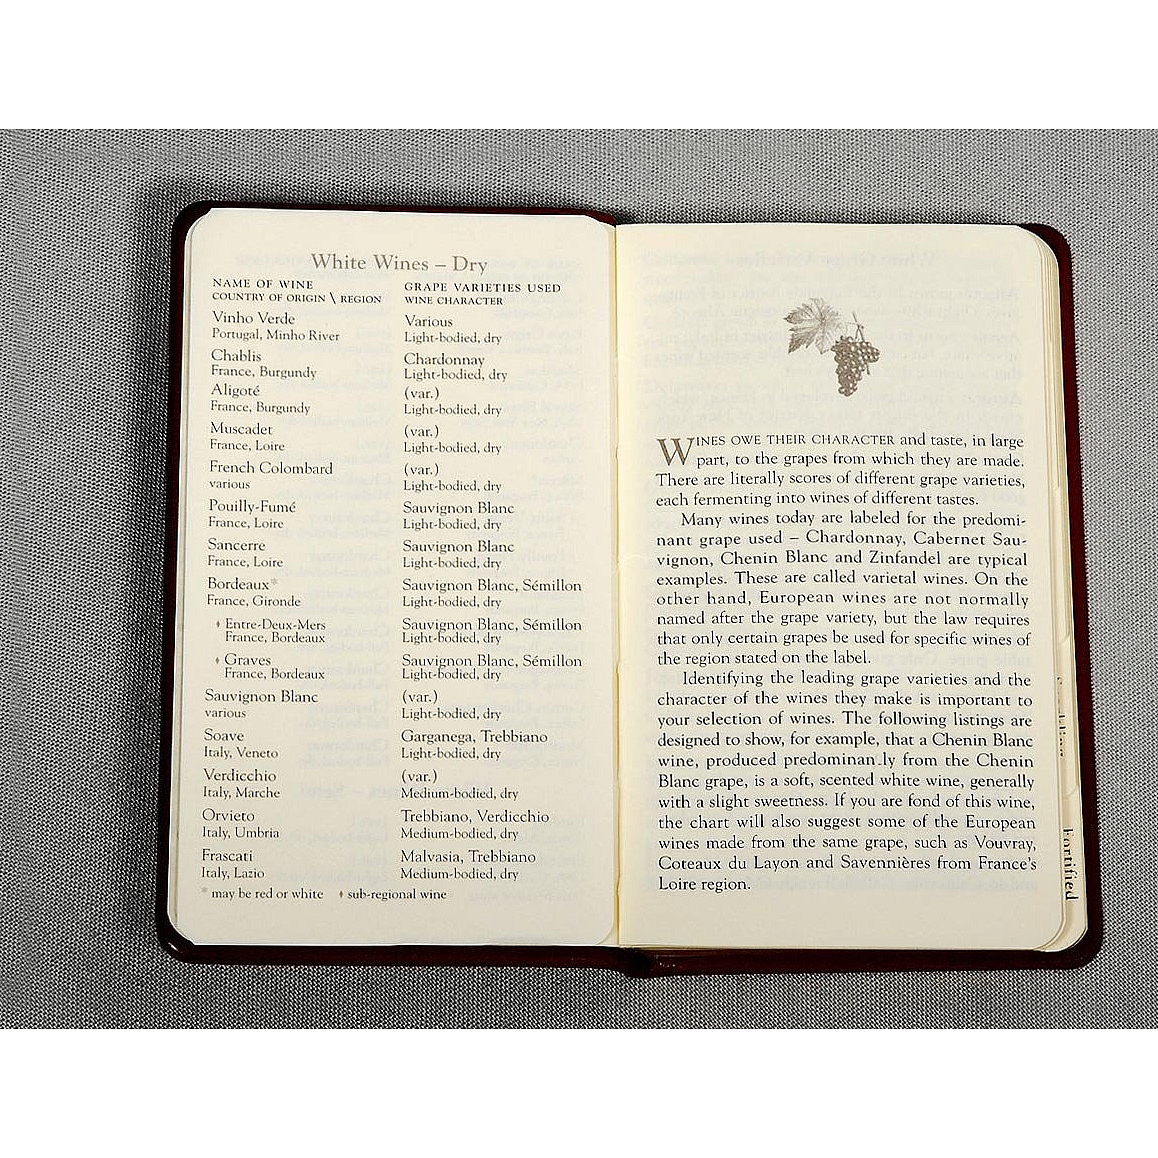 White Wines – Dry
NAME OF WINE
COUNTRY OF ORIGIN \ REGION
GRAPE VARIETIES USED
WINE CHARACTER
Vinho Verde
Portugal, Minho River
Various
Light-bodied, dry
Chablis
France, Burgundy
Chardonnay
Light-bodied, dry
Aligoté
France, Burgundy
(var.)
Light-bodied, dry
Muscadet
France, Loire
(var.)
Light-bodied, dry
French Colombard
various
(var.)
Light-bodied, dry
Pouilly-Fumé
France, Loire
Sauvignon Blanc
Light-bodied, dry
Sancerre
France, Loire
Sauvignon Blanc
Light-bodied, dry
Bordeaux*
France, Gironde
Sauvignon Blanc, Sémillon
Light-bodied, dry
♦ Entre-Deux-Mers
France, Bordeaux
Sauvignon Blanc, Sémillon
Light-bodied, dry
♦ Graves
France, Bordeaux
Sauvignon Blanc, Sémillon
Light-bodied, dry
Sauvignon Blanc
various
(var.)
Light-bodied, dry
Soave
Italy, Veneto
Garganega, Trebbiano
Light-bodied, dry
Verdicchio
Italy, Marche
(var.)
Medium-bodied, dry
Orvieto
Italy, Umbria
Trebbiano, Verdicchio
Medium-bodied, dry
Frascati
Italy, Lazio
Malvasia, Trebbiano
Medium-bodied, dry
* may be red or white ♦ sub-regional wine
WINES OWE THEIR CHARACTER and taste, in large
part, to the grapes from which they are made.
There are literally scores of different grape varieties,
each fermenting into wines of different tastes.
Many wines today are labeled for the predomi-
nant grape used – Chardonnay, Cabernet Sau-
vignon, Chenin Blanc and Zinfandel are typical
examples. These are called varietal wines. On the
other hand, European wines are not normally
named after the grape variety, but the law requires
that only certain grapes be used for specific wines of
the region stated on the label.
Identifying the leading grape varieties and the
character of the wines they make is important to
your selection of wines. The following listings are
designed to show, for example, that a Chenin Blanc
wine, produced predominan.ly from the Chenin
Blanc grape, is a soft, scented white wine, generally
with a slight sweetness. If you are fond of this wine,
the chart will also suggest some of the European
wines made from the same grape, such as Vouvray,
Coteaux du Layon and Savennières from France's
Loire region.
Fortified